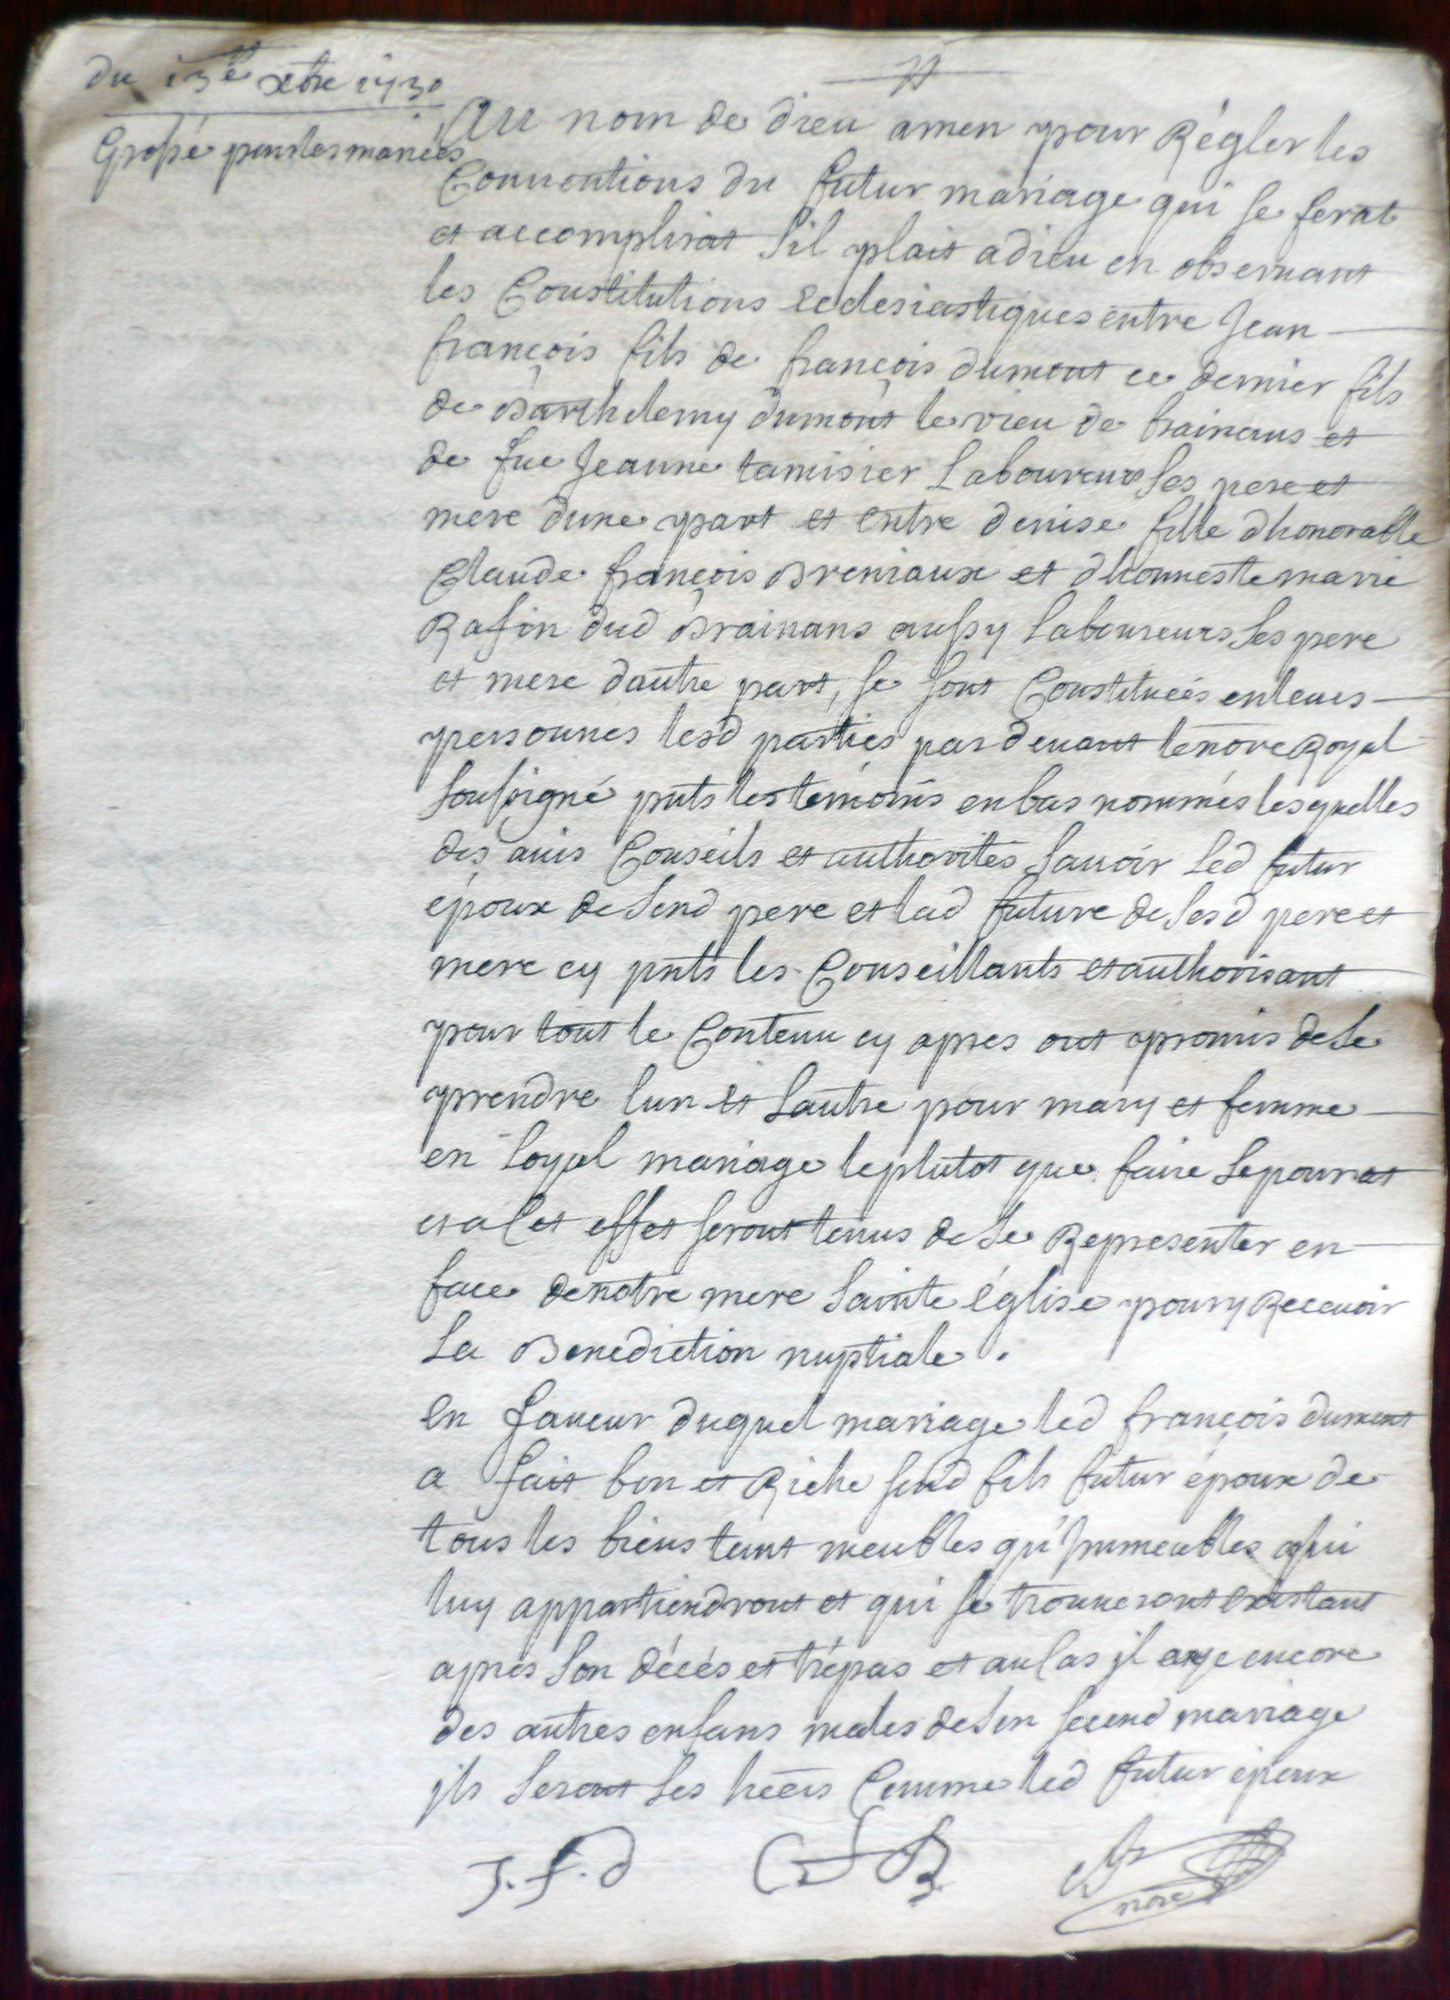 du 13e xbre 1730
Grossé pour les mariés
Au nom de dieu amen pour Régler les
Conuentions du futur mariage qui se ferat
et accomplirat s'il plait a dieu en obseruant
les Constitutions Ecclesiastiques entre Jean
françois fils de françois dumont ce dernier fils
de Barthelemy dumont le vieu de brainans et
de fue Jeanne tamisier Laboureurs ses pere et
mere dune part et Entre denise fille dhonorable
Claude françois Breniaux et dhonneste marie
Rafin dud Brainans aussy Laboureurs ses pere
et mere dautre part, se sont Constituées en leurs
personnes lesd parties par deuant le nore Royal
soussigné pnts les témoins en bas nommés lesquelles
des auis Conseils et authorités sauoir led futur
époux de send pere et lad future de sesd pere et
mere cy pnts les Conseillants et authorisant
pour tout le Contenu cy apres ont promis de se
prendre lun et Lautre pour mary et femme
en Loyal mariage le plutot que faire se pourrat
et a Cet effet seront tenus de se Représenter en
face de notre mere Sainte église pour y Receuoir
La Benediction nuptiale.
En faueur duquel mariage led françois dumont
a fait bon et Riche send fils futur époux de
tous les biens tant meubles qu'Immeubles qui
luy appartiendront et qui se trouueront existant
aprés son décés et trépas et au Cas jl aye encore
des autres enfans males de son second mariage
jls seront ses heërs Comme led futur époux
J. f. d CFB nore